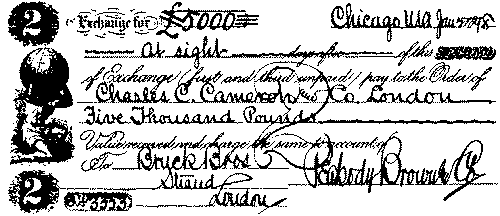 2 Exchange for £5000 Chicago, USA Jan 5th 1878
At sight days after of this SECOND
of Exchange (first and third unpaid) pay to the Order of
Charles C. Cameron & Co. London
Five Thousand Pounds
Value received and charge the same to account of
To Bryck Bros Peabody Brown & Co
Strand
2 No 3323 London